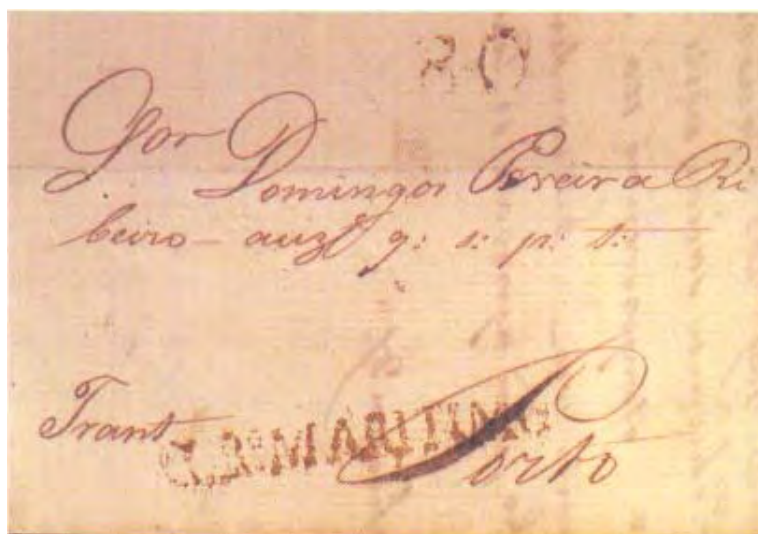 80
Snor Domingos Pereira Ri
beiro - auzte q: s: p: s:
Trant
MARITIMO
Porto